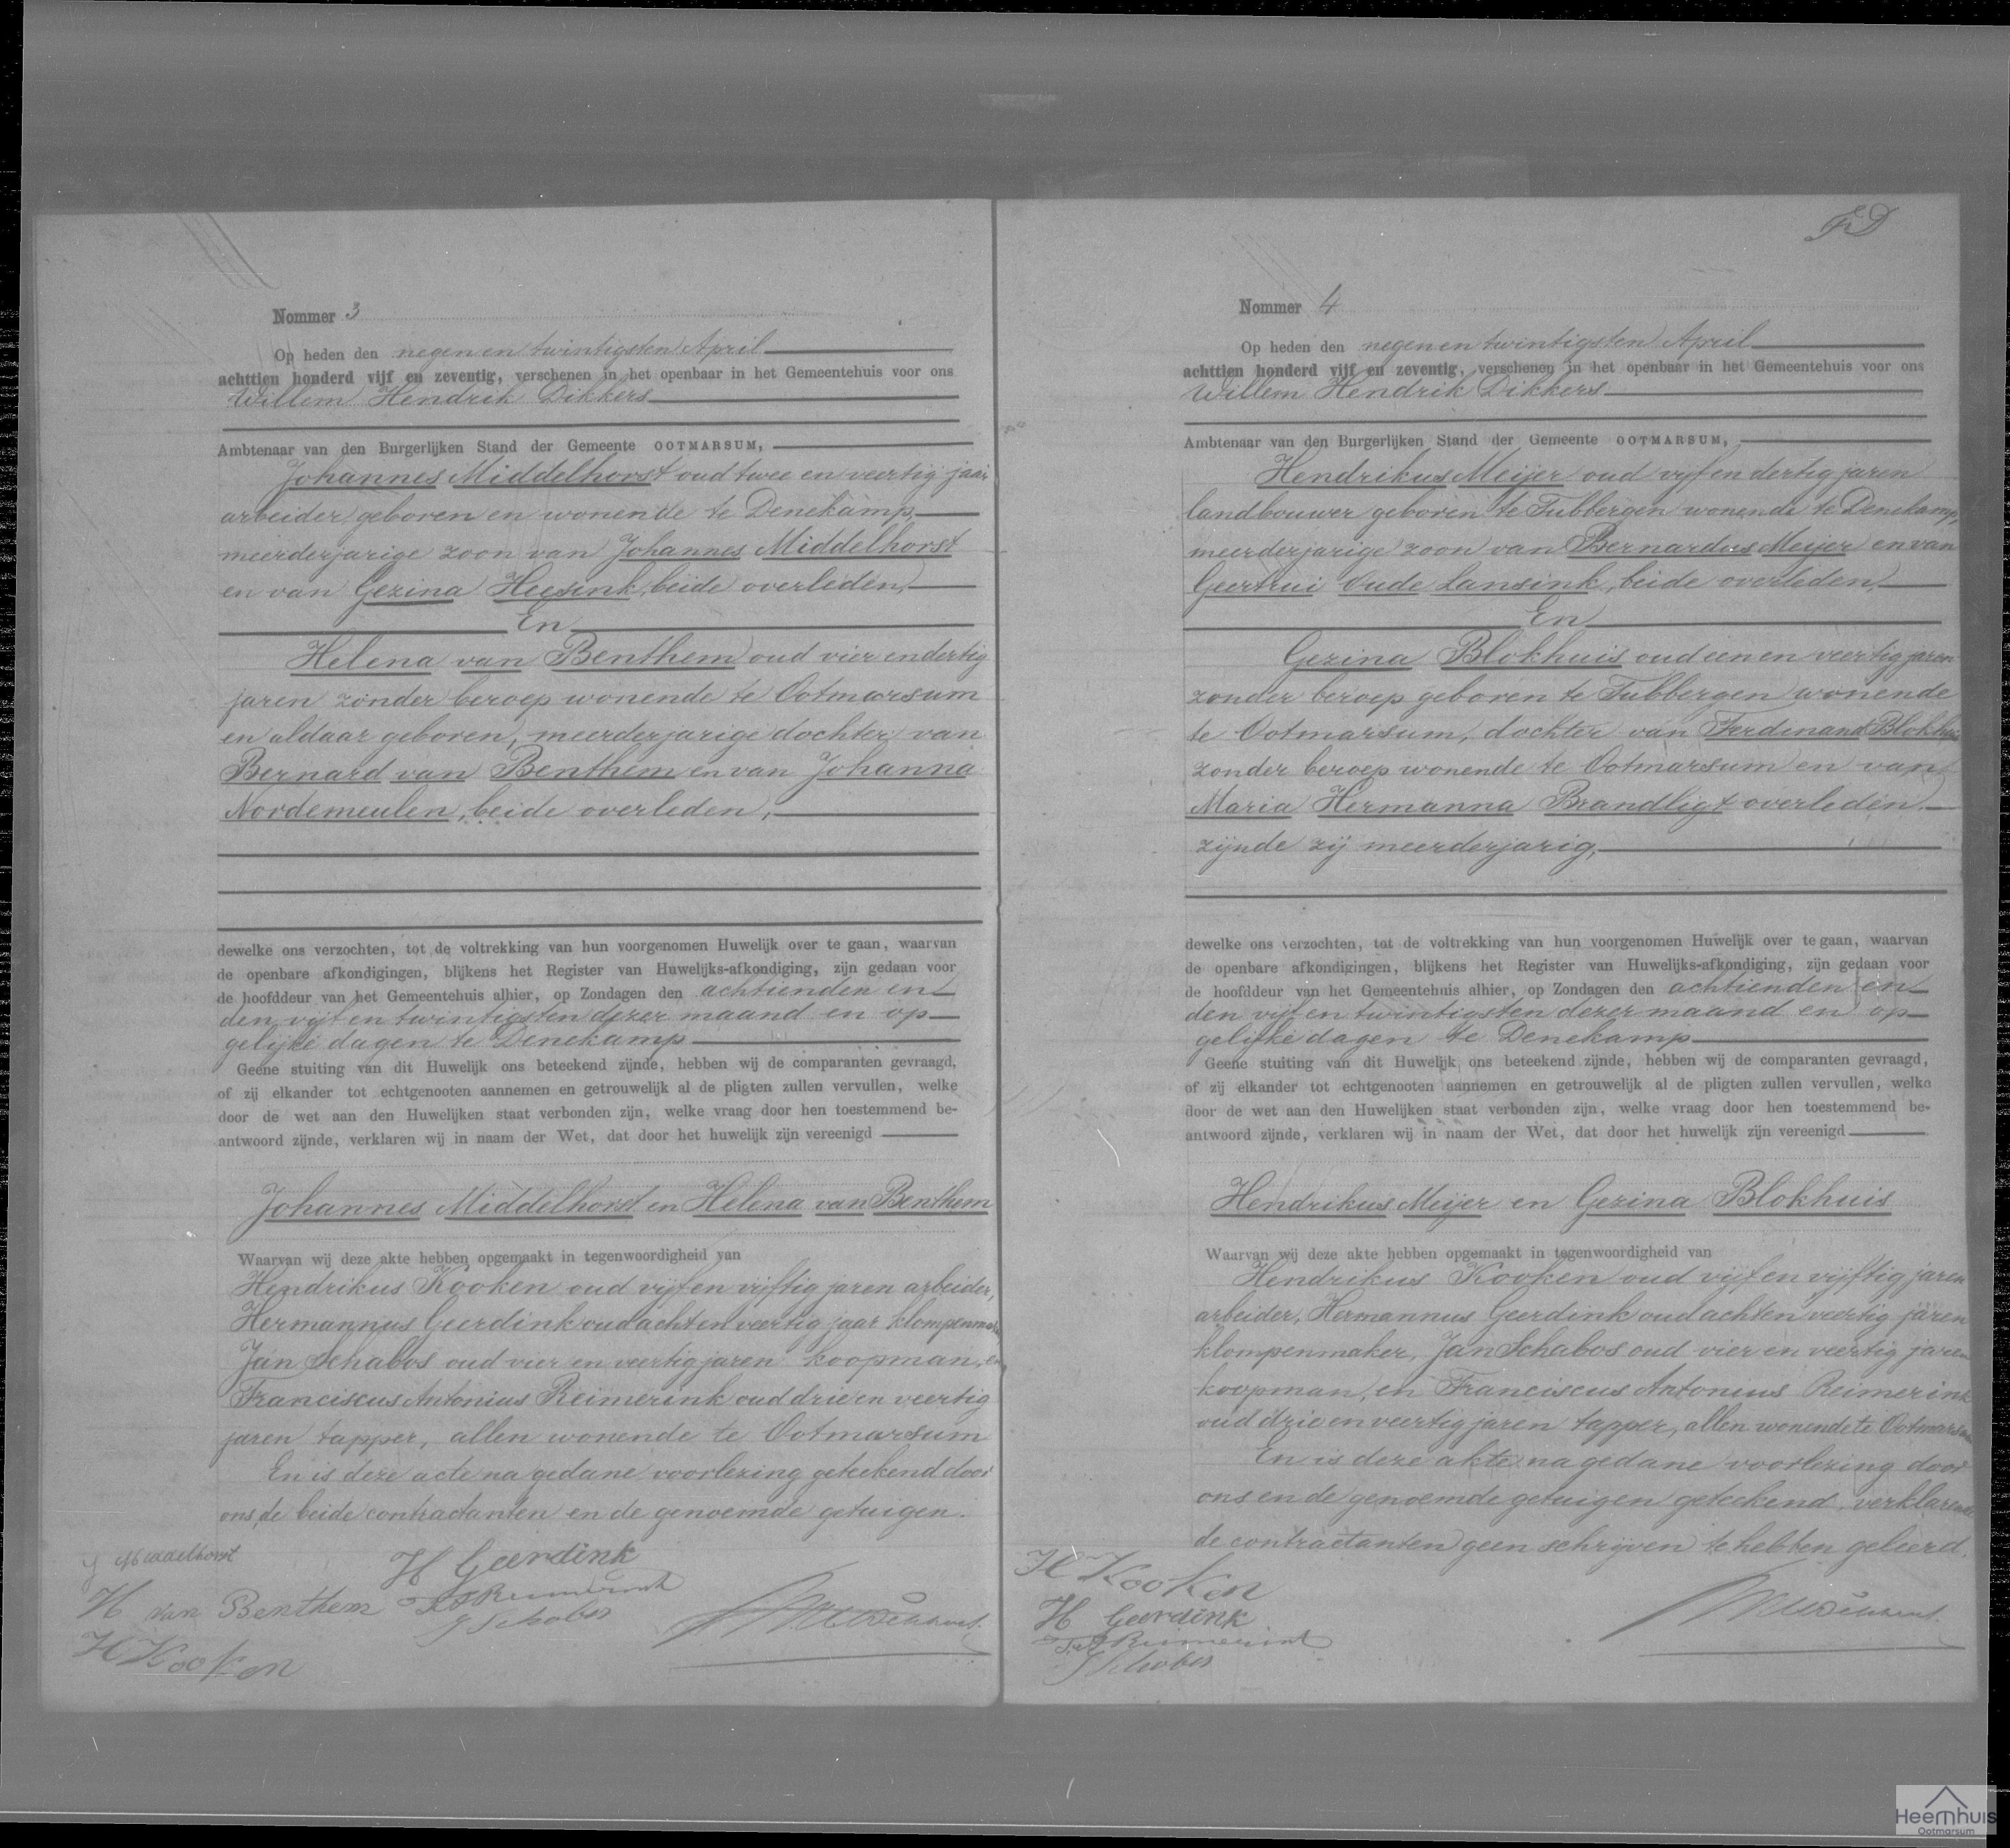 Nommer 3
Op heden den negen en twintigsten April
achttien honderd vijf en zeventig, verschenen in het openbaar in het Gemeentehuis voor ons
Willem Hendrik Dikkers
Ambtenaar van den Burgerlijken Stand der Gemeente OOTMARSUM,
Johannes Middelhorst oud twee en veertig jaar
arbeider geboren en wonende te Denekamp,
meerderjarige zoon van Johannes Middelhorst
en van Gezina Heesink, beide overleden,
En
Helena van Benthem oud vier en dertig
jaren zonder beroep wonende te Ootmarsum
en aldaar geboren, meerderjarige dochter van
Bernard van Benthem en van Johanna
Nordemeulen, beide overleden,
dewelke ons verzochten, tot de voltrekking van hun voorgenomen Huwelijk over te gaan, waarvan
de openbare afkondigingen, blijkens het Register van Huwelijks-afkondiging, zijn gedaan voor
de hoofddeur van het Gemeentehuis alhier, op Zondagen den achtienden en
den vijf en twintigsten dezer maand en op
gelijke dagen te Denekamp
Geene stuiting van dit Huwelijk ons beteekend zijnde, hebben wij de comparanten gevraagd,
of zij elkander tot echtgenooten aannemen en getrouwelijk al de pligten zullen vervullen, welke
door de wet aan den Huwelijken staat verbonden zijn, welke vraag door hen toestemmend be-
antwoord zijnde, verklaren wij in naam der Wet, dat door het huwelijk zijn vereenigd
Johannes Middelhorst en Helena van Benthem
Waarvan wij deze akte hebben opgemaakt in tegenwoordigheid van
Hendrikus Kooken oud vijf en vijftig jaren arbeider,
Hermannus Geerdink oud acht en veertig jaar klompenmaker
Jan Schabos oud vier en veertig jaren koopman, en
Franciscus Antonius Reimerink oud drie en veertig
jaren tapper, allen wonende te Ootmarsum
En is deze acte na gedane voorlezing geteekend door
ons, de beide contractanten en de genoemde getuigen.
J Middelhorst
H van Benthem
H Kooken
H Geerdink
F A Reimerink
J Schabos
FD
Nommer 4
Op heden den negen en twintigsten April
achttien honderd vijf en zeventig, verschenen in het openbaar in het Gemeentehuis voor ons
Willem Hendrik Dikkers
Ambtenaar van den Burgerlijken Stand der Gemeente OOTMARSUM,
Hendrikus Meijer oud vijf en dertig jaren
landbouwer geboren te Tubbergen wonende te Denekamp,
meerderjarige zoon van Bernardus Meijer en van
Geertrui Oude Lansink, beide overleden,
En
Gezina Blokhuis oud een en veertig jaren
zonder beroep geboren te Tubbergen wonende
te Ootmarsum, dochter van Ferdinand Blokhuis
zonder beroep wonende te Ootmarsum en van
Maria Hermanna Brandligt overleden
zijnde zij meerderjarig,
dewelke ons verzochten, tot de voltrekking van hun voorgenomen Huwelijk over te gaan, waarvan
de openbare afkondigingen, blijkens het Register van Huwelijks-afkondiging, zijn gedaan voor
de hoofddeur van het Gemeentehuis alhier, op Zondagen den achtienden en
den vijf en twintigsten dezer maand en op
gelijke dagen te Denekamp
Geene stuiting van dit Huwelijk ons beteekend zijnde, hebben wij de comparanten gevraagd,
of zij elkander tot echtgenooten aannemen en getrouwelijk al de pligten zullen vervullen, welke
door de wet aan den Huwelijken staat verbonden zijn, welke vraag door hen toestemmend be-
antwoord zijnde, verklaren wij in naam der Wet, dat door het huwelijk zijn vereenigd
Hendrikus Meijer en Gezina Blokhuis
Waarvan wij deze akte hebben opgemaakt in tegenwoordigheid van
Hendrikus Kooken oud vijf en vijftig jaren
arbeider, Hermannus Geerdink oud acht en veertig jaren
klompenmaker, Jan Schabos oud vier en veertig jaren
koopman, en Franciscus Antonius Reimerink
oud drie en veertig jaren tapper, allen wonende te Ootmarsum
En is deze akte na gedane voorlezing door
ons en de genoemde getuigen geteekend, verklarende
de contractanten geen schrijven te hebben geleerd.
H Kooken
H Geerdink
F A Reimerink
J Schabos
Heemhuis
Ootmarsum